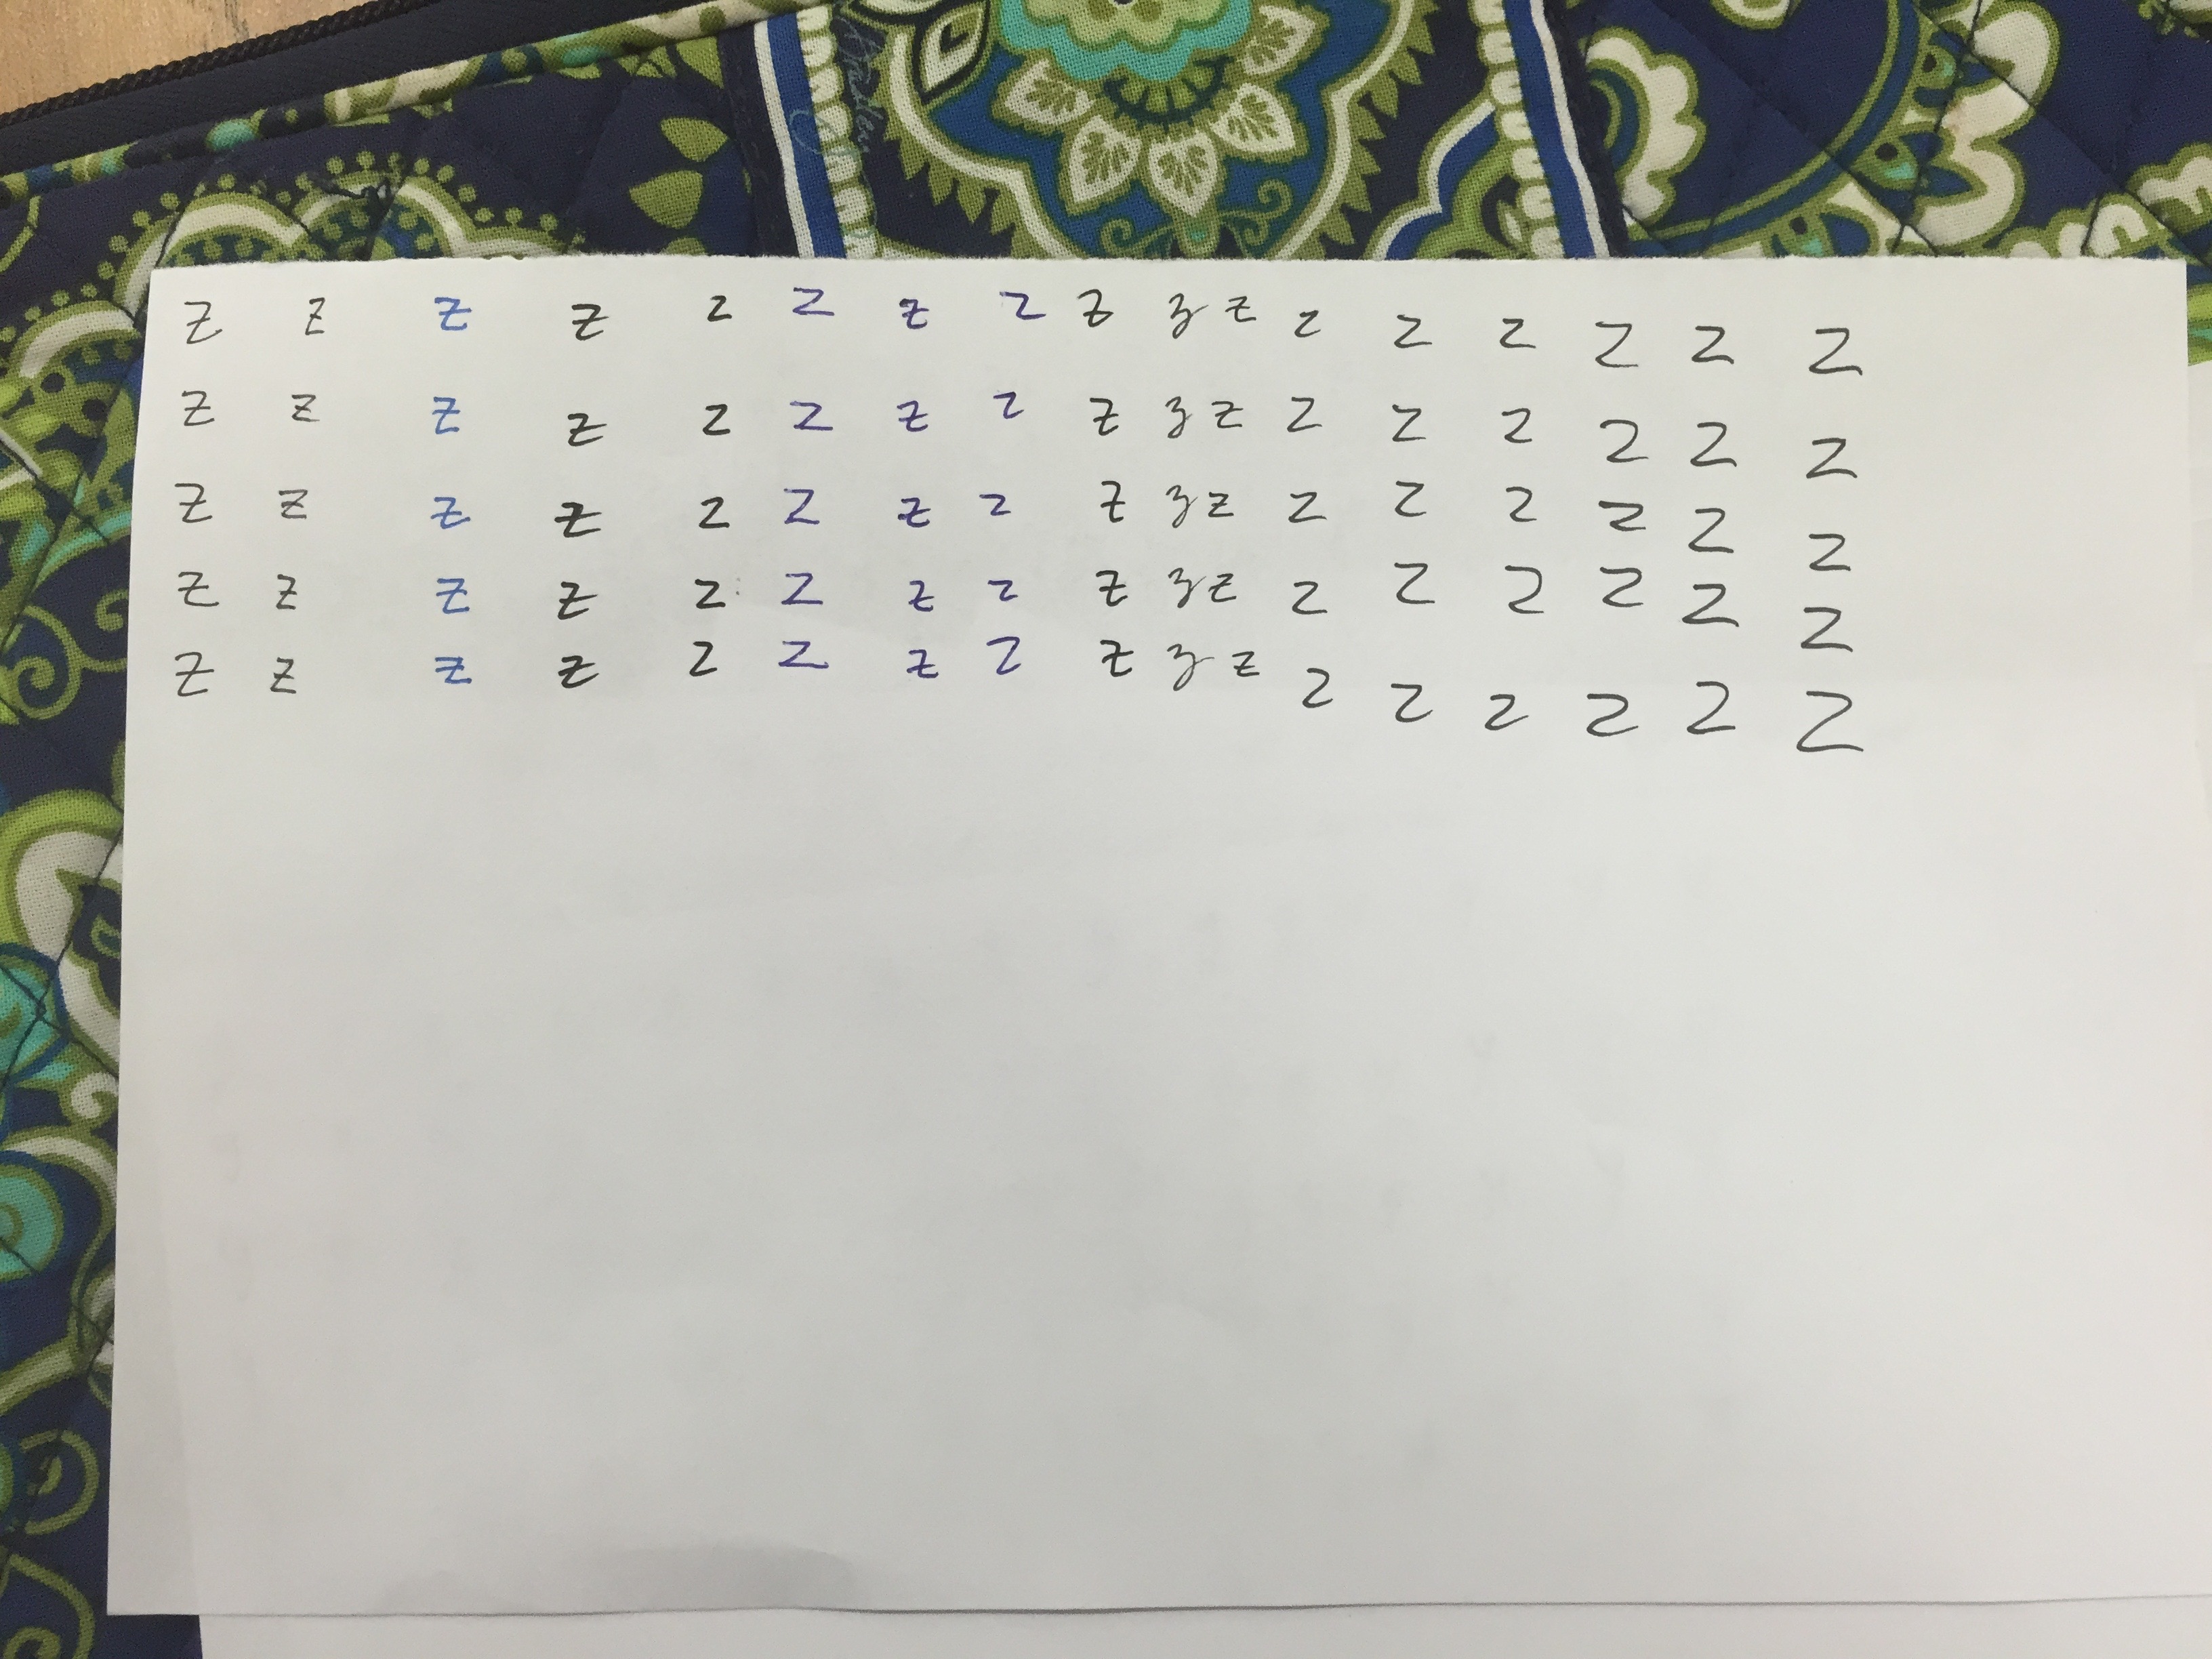 z z z z z z z z z z z z z z z z z
z z z z z z z z z z z z z z z z z
z z z z z z z z z z z z z z z z z
z z z z z z z z z z z z z z z z z
z z z z z z z z z z z z z z z z z